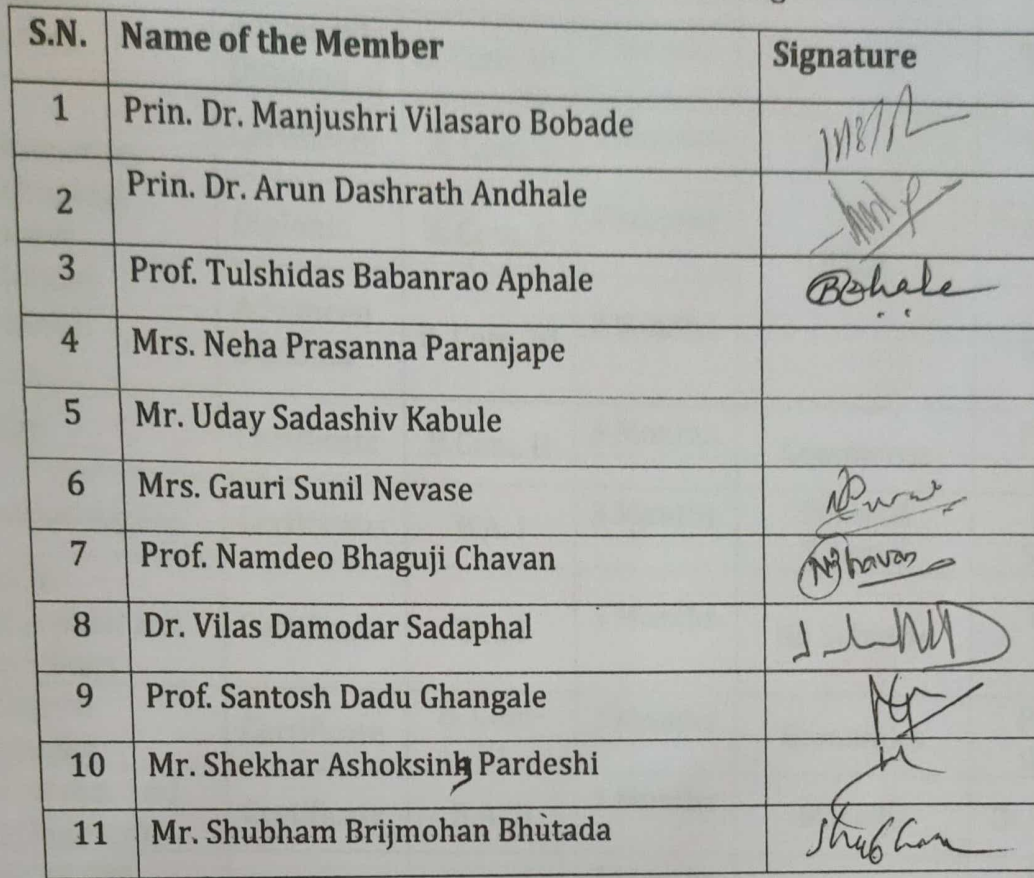 S.N. Name of the Member Signature
1 Prin. Dr. Manjushri Vilasaro Bobade
2 Prin. Dr. Arun Dashrath Andhale
3 Prof. Tulshidas Babanrao Aphale
4 Mrs. Neha Prasanna Paranjape
5 Mr. Uday Sadashiv Kabule
6 Mrs. Gauri Sunil Nevase
7 Prof. Namdeo Bhaguji Chavan
8 Dr. Vilas Damodar Sadaphal
9 Prof. Santosh Dadu Ghangale
10 Mr. Shekhar Ashoksing Pardeshi
11 Mr. Shubham Brijmohan Bhutada Shubham